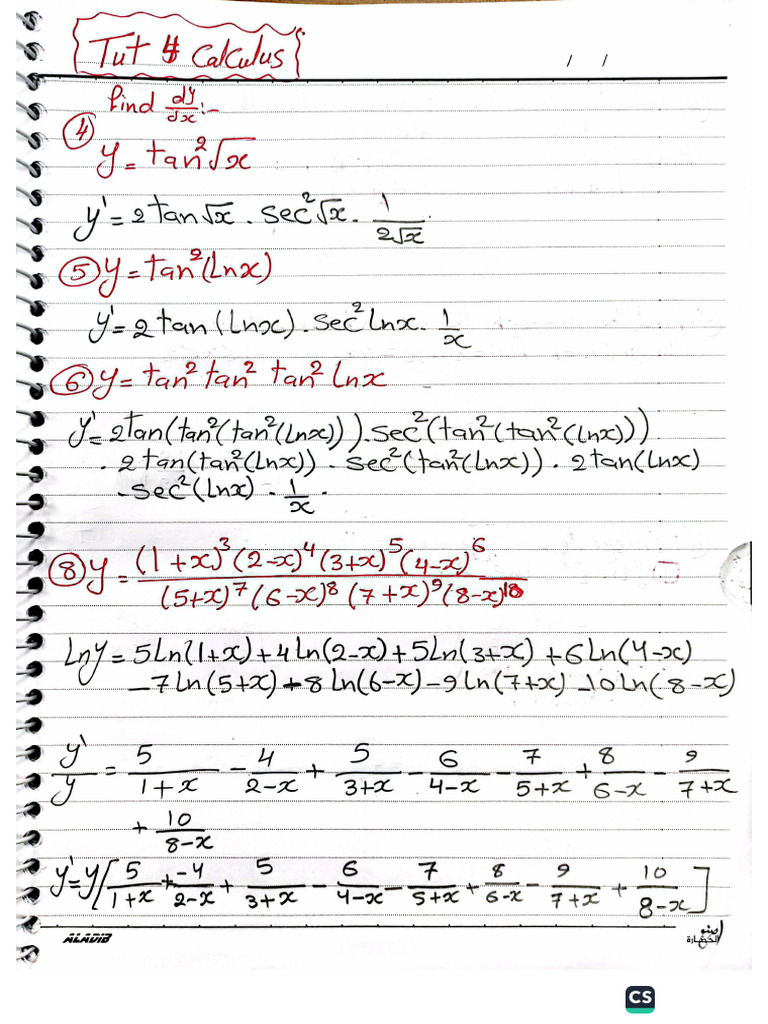 Tut 4 Calculus
/ /
Find dy/dx :-
④ y = tan²√x
y' = 2 tan√x . sec²√x . 1/(2√x) .
⑤ y = tan²(lnx)
y' = 2 tan(lnx) . sec² lnx . 1/x
⑥ y = tan² tan² tan² lnx
y' = 2tan(tan²(tan²(lnx))) . sec²(tan²(tan²(lnx)))
. 2 tan(tan²(lnx)) . sec²(tan²(lnx)) . 2 tan(lnx)
. sec²(lnx) . 1/x .
⑧ y = (1+x)³ (2-x)⁴ (3+x)⁵ (4-x)⁶ / (5+x)⁷ (6-x)⁸ (7+x)⁹ (8-x)¹⁰
lny = 5ln(1+x) + 4 ln(2-x) + 5 ln(3+x) + 6 ln(4-x)
- 7 ln(5+x) - 8 ln(6-x) - 9 ln(7+x) - 10 ln(8-x)
y'/y = 5/(1+x) - 4/(2-x) + 5/(3+x) - 6/(4-x) - 7/(5+x) + 8/(6-x) - 9/(7+x)
+ 10/(8-x)
y' = y [ 5/(1+x) + -4/(2-x) + 5/(3+x) - 6/(4-x) - 7/(5+x) + 8/(6-x) - 9/(7+x) + 10/(8-x) ]
ALADIB
CS